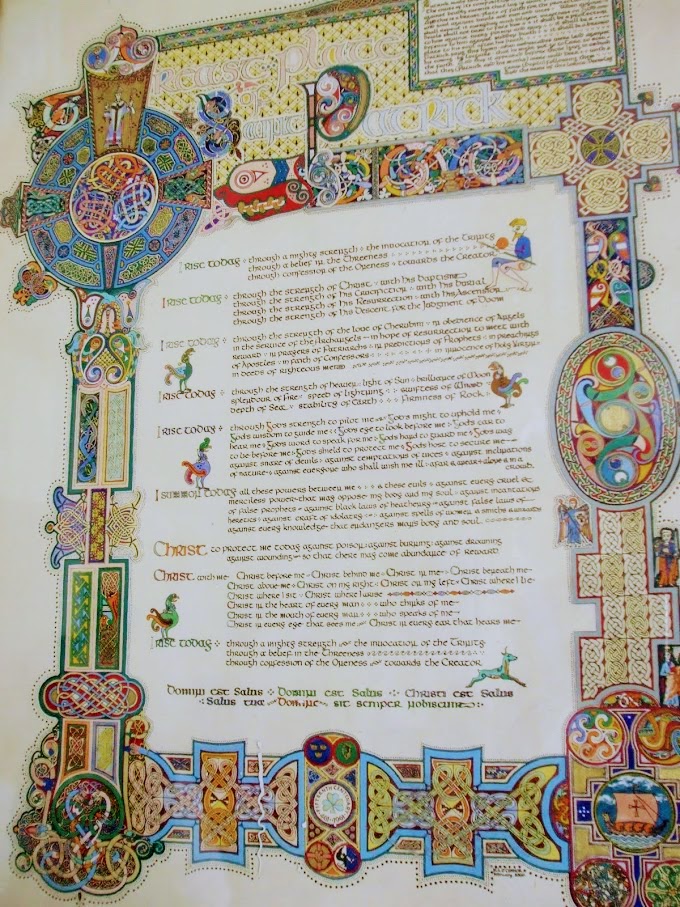 Breast-Plate
of
Saint Patrick
I rise today through a mighty strength the invocation of the Trinity
through a belief in the Threeness
through confession of the Oneness towards the Creator
I rise today through the strength of Christ with his baptism
through the strength of his Crucifixion with his burial
through the strength of his Resurrection with his Ascension
through the strength of his Descent for the Judgment of Doom
I rise today through the strength of the love of Cherubim in obedience of Angels
in the service of the Archangels in hope of resurrection to meet with
reward in prayers of Patriarchs in predictions of Prophets in preachings
of Apostles in faith of Confessors in innocence of Holy Virgins
in deeds of righteous men
I rise today through the strength of heaven light of Sun brilliance of Moon
splendour of Fire speed of lightning swiftness of Wind
depth of Sea stability of Earth Firmness of Rock
I rise today through Gods strength to pilot me Gods might to uphold me
Gods wisdom to guide me Gods eye to look before me Gods ear to
hear me Gods word to speak for me Gods hand to guard me Gods way
to lie before me Gods shield to protect me Gods host to secure me
against snare of devils against temptations of vices against inclinations
of nature against everyone who shall wish me ill afar & anear alone & in a
crowd.
I summon today all these powers between me & these evils against every cruel &
merciless power that may oppose my body and my soul against incantations
of false prophets against black laws of heathenry against false laws of
heretics against craft of idolatry against spells of women & smiths & wizards
against every knowledge that endangers mans body and soul
Christ to protect me today against poison against burning against drowning
against wounding so that there may come abundance of reward
Christ with me Christ before me Christ behind me Christ in me Christ beneath me
Christ above me Christ on my right Christ on my left Christ where I lie
Christ where I sit Christ where I arise
Christ in the heart of every man who thinks of me
Christ in the mouth of every man who speaks of me
Christ in every eye that sees me Christ in every ear that hears me
I rise today through a mighty strength the invocation of the Trinity
through a belief in the Threeness
through confession of the Oneness towards the Creator
Domini est Salus Domini est Salus Christi est Salus
Salus tua Domine sit semper nobiscum